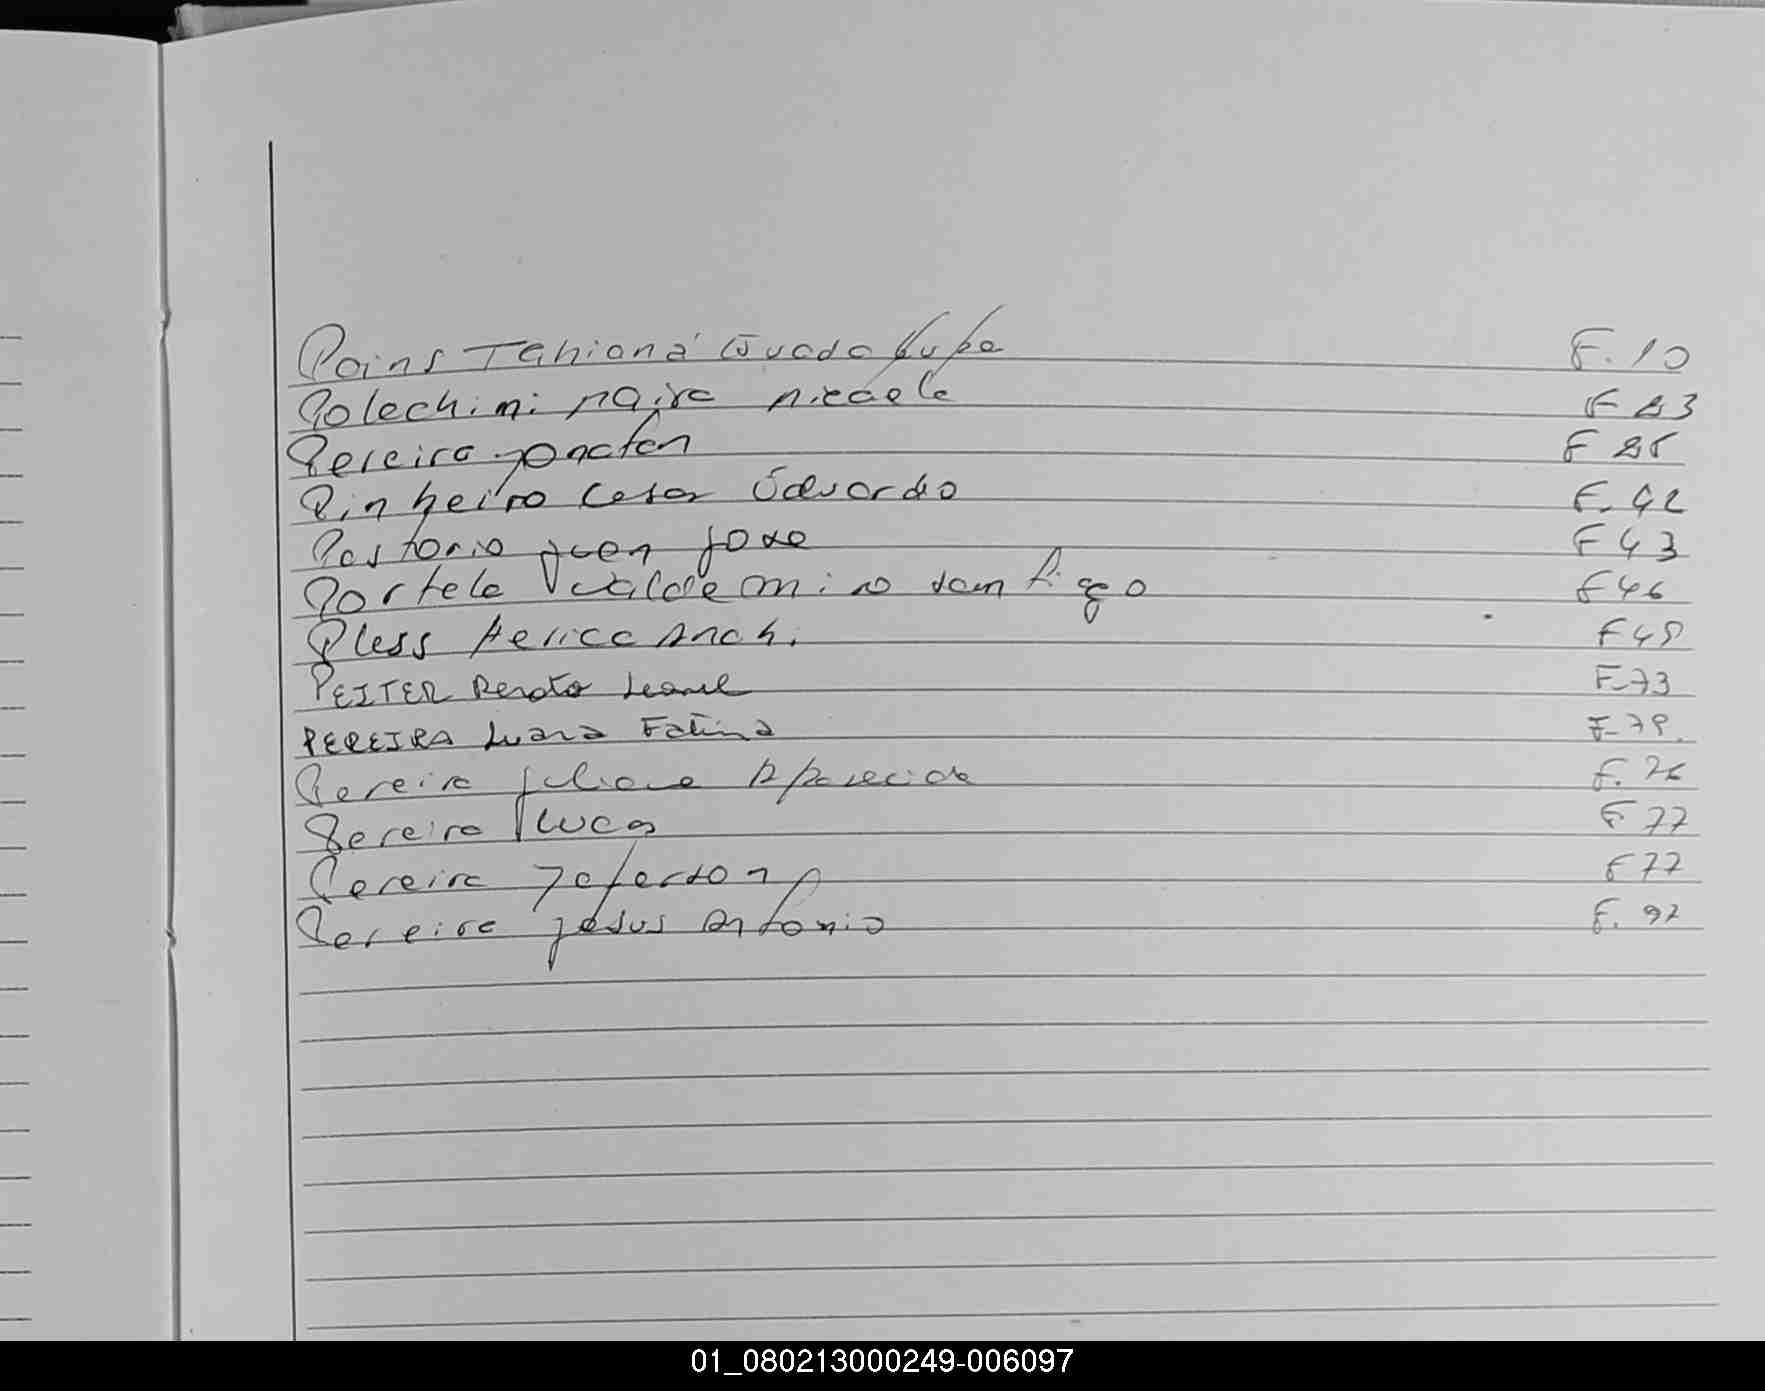 Poins Tahiana Guadalupe F. 10
Polechini Naira Micaele F 23
Pereira Jonatan F 25
Pinheiro Cesar Eduardo F. 42
Pastorio Juan Jose F 43
Portela Valdemiro Santiago F 46
Pless F 49
PEITER Renato Leonel F-73
PEREIRA Luana Fatima F-75.
Pereira Juliana Aparecida F. 76
Pereira Lucas F 77
Pereira Jeferson F 77
Pereira Jesus Antonio F. 92
01_080213000249-006097